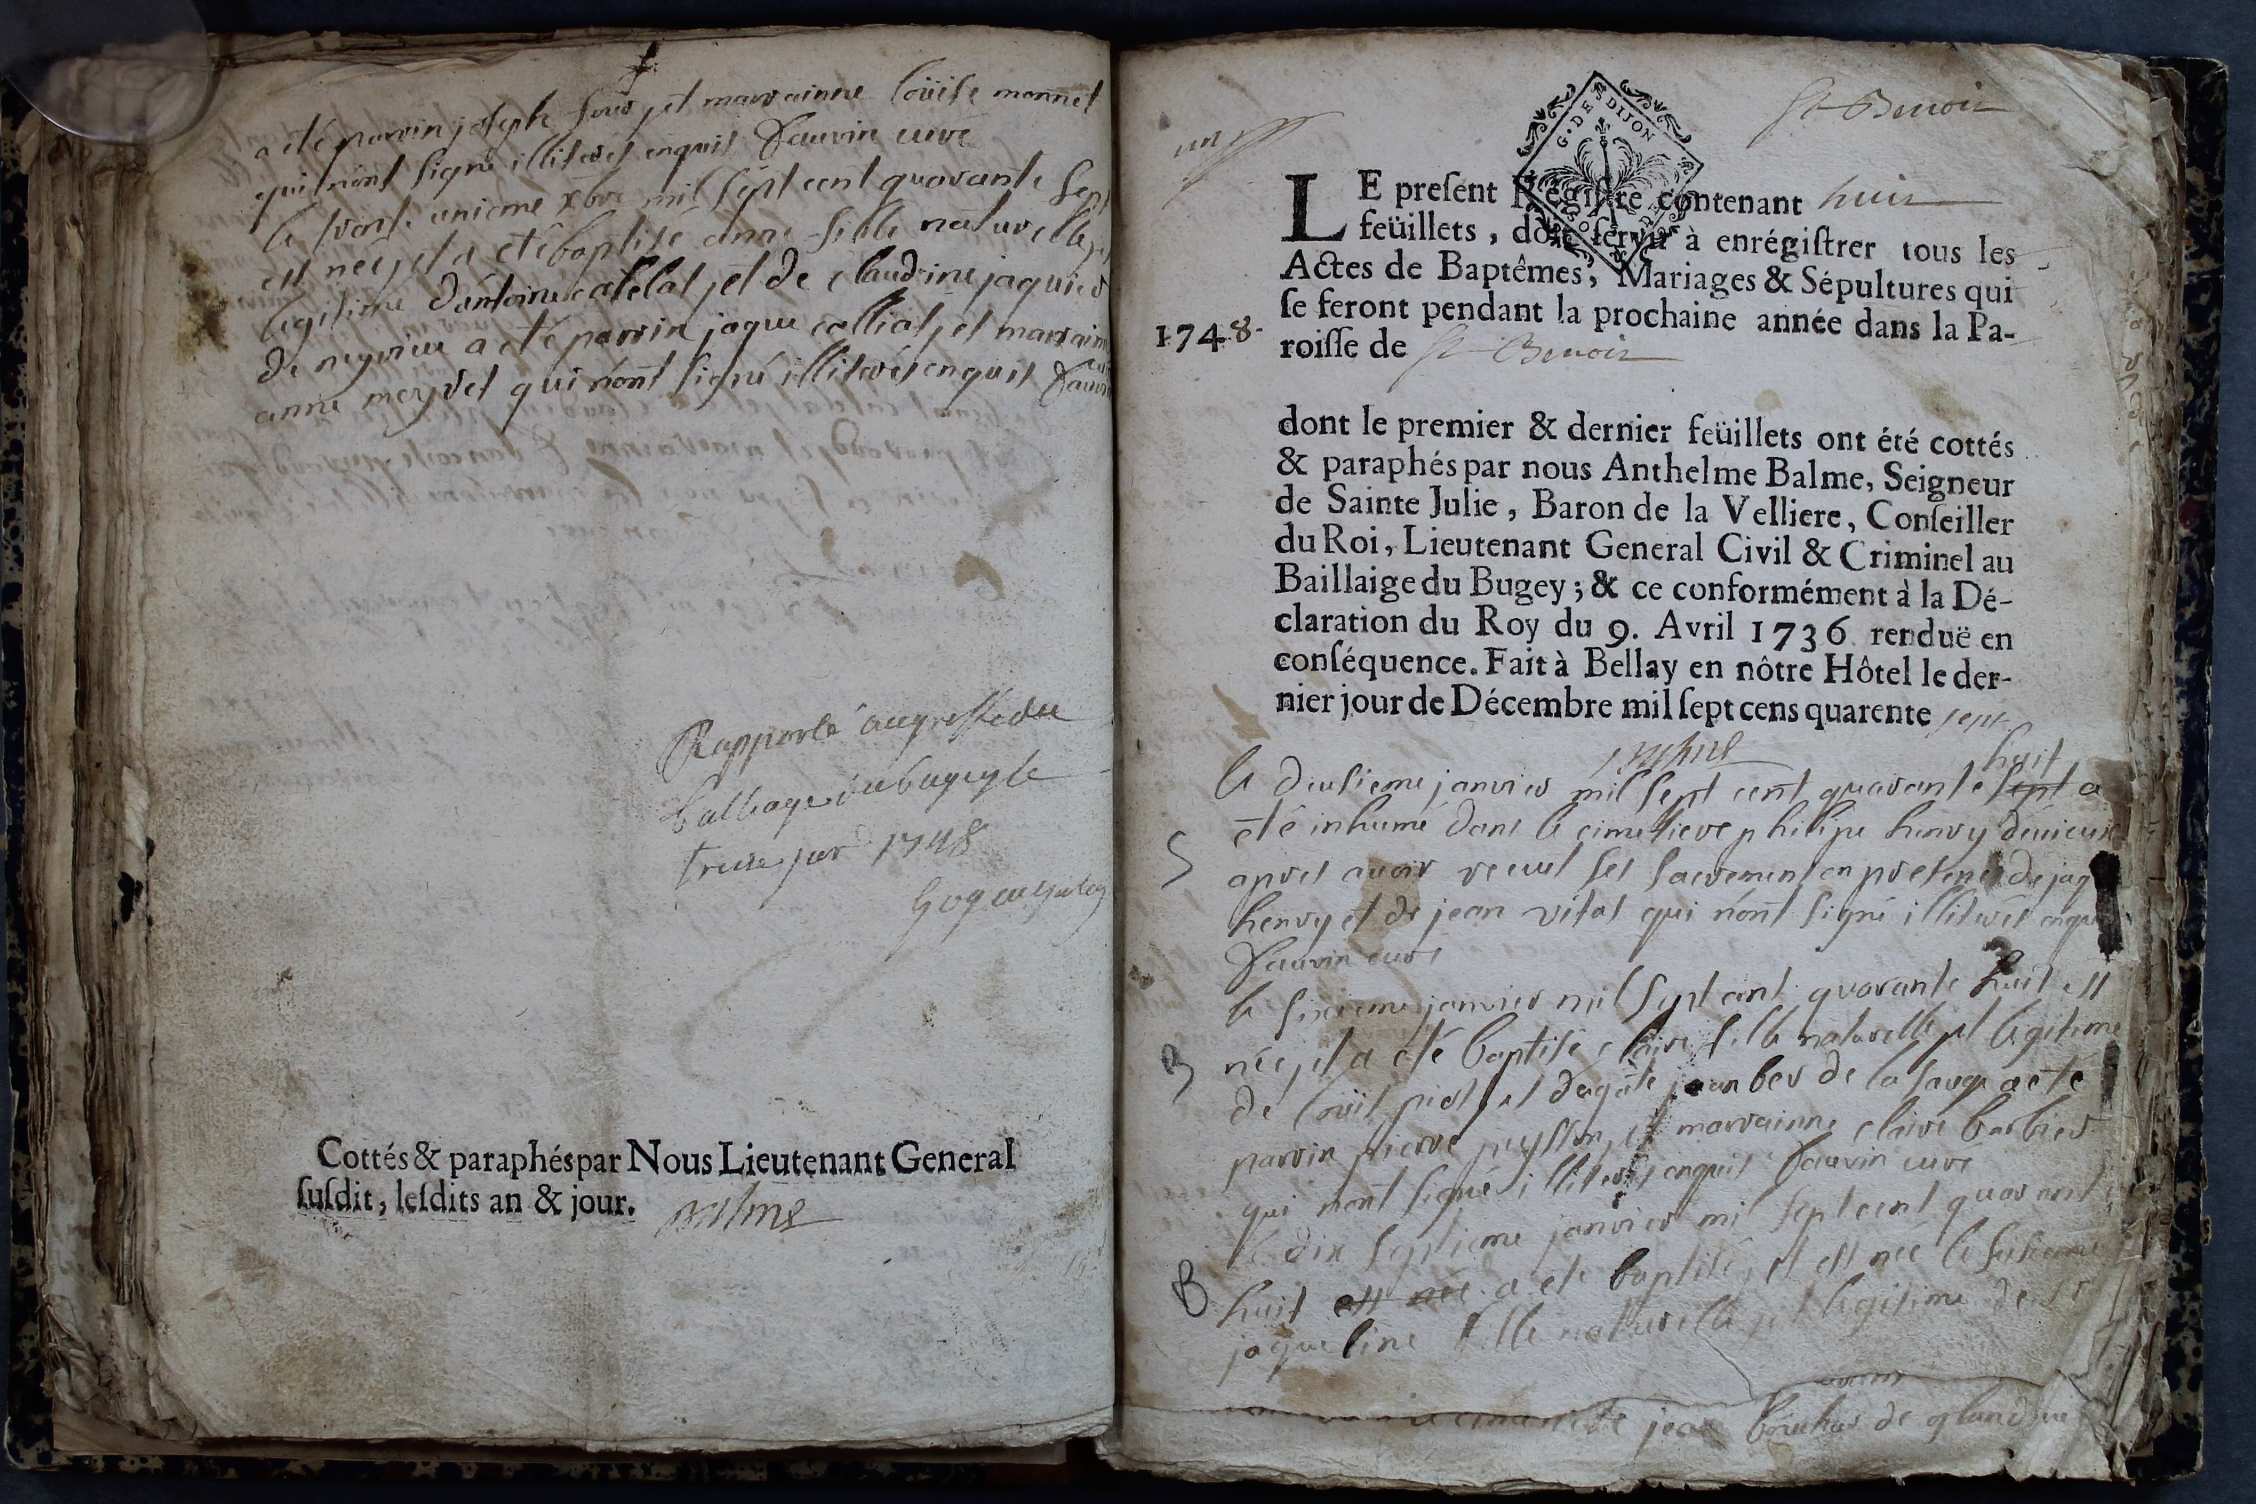 a eté parrin joseph et marrainne loüise monnet
qui n'ont signé illiterés enquis Dauvin curé
le trente unieme xbre mil sept cent quarante sept
est neé, et a eté baptisé anne fille naturelle, et
legitime d'antoine catelat, et de claudine jaquier
de a eté parrin jaque calliat, et marraine
anne meyret qui n'ont signé illiterés enquis Dauvin
curé
Rapporté au greffe du
balliage du bugey le
treize jer 1748
Cottés & paraphés par Nous Lieutenant General
susdit, lesdits an & jour.
Balme
un
St Benoit
G. DE DIJON
LE present Régistre contenant huit
feüillets, doit servir à enrégistrer tous les
Actes de Baptêmes, Mariages & Sépultures qui
se feront pendant la prochaine année dans la Pa-
1748.
roisse de St Benoit
dont le premier & dernier feüillets ont été cottés
& paraphés par nous Anthelme Balme, Seigneur
de Sainte Julie, Baron de la Velliere, Conseiller
du Roi, Lieutenant General Civil & Criminel au
Baillaige du Bugey; & ce conformément à la Dé-
claration du Roy du 9. Avril 1736 renduë en
conséquence. Fait à Bellay en nôtre Hôtel le der-
nier jour de Décembre mil sept cens quarente sept
Balme
huit
le deusieme janvier mil sept cent quarante sept a
S
eté inhumé dans le cimetiere philipe henry
apres avoir receut ses sacrement en presence de jaq
henry et de jean vitat qui n'ont signé illiterés enquis
Dauvin curé
le sixieme janvier mil sept cent quarante huit est
B
née, et a eté baptisé claire fille naturelle, et legitime
de loüis piot, et d'agate de la a eté
parrin pierre peysson, et marrainne claire barbier
qui n'ont signé illiterés enquis Dauvin curé
le dix septieme janvier mil sept cent quarante
B
huit est neé a eté baptisé, et est neé le
jaqueline fille naturelle, et legitime de
jean de glandieu